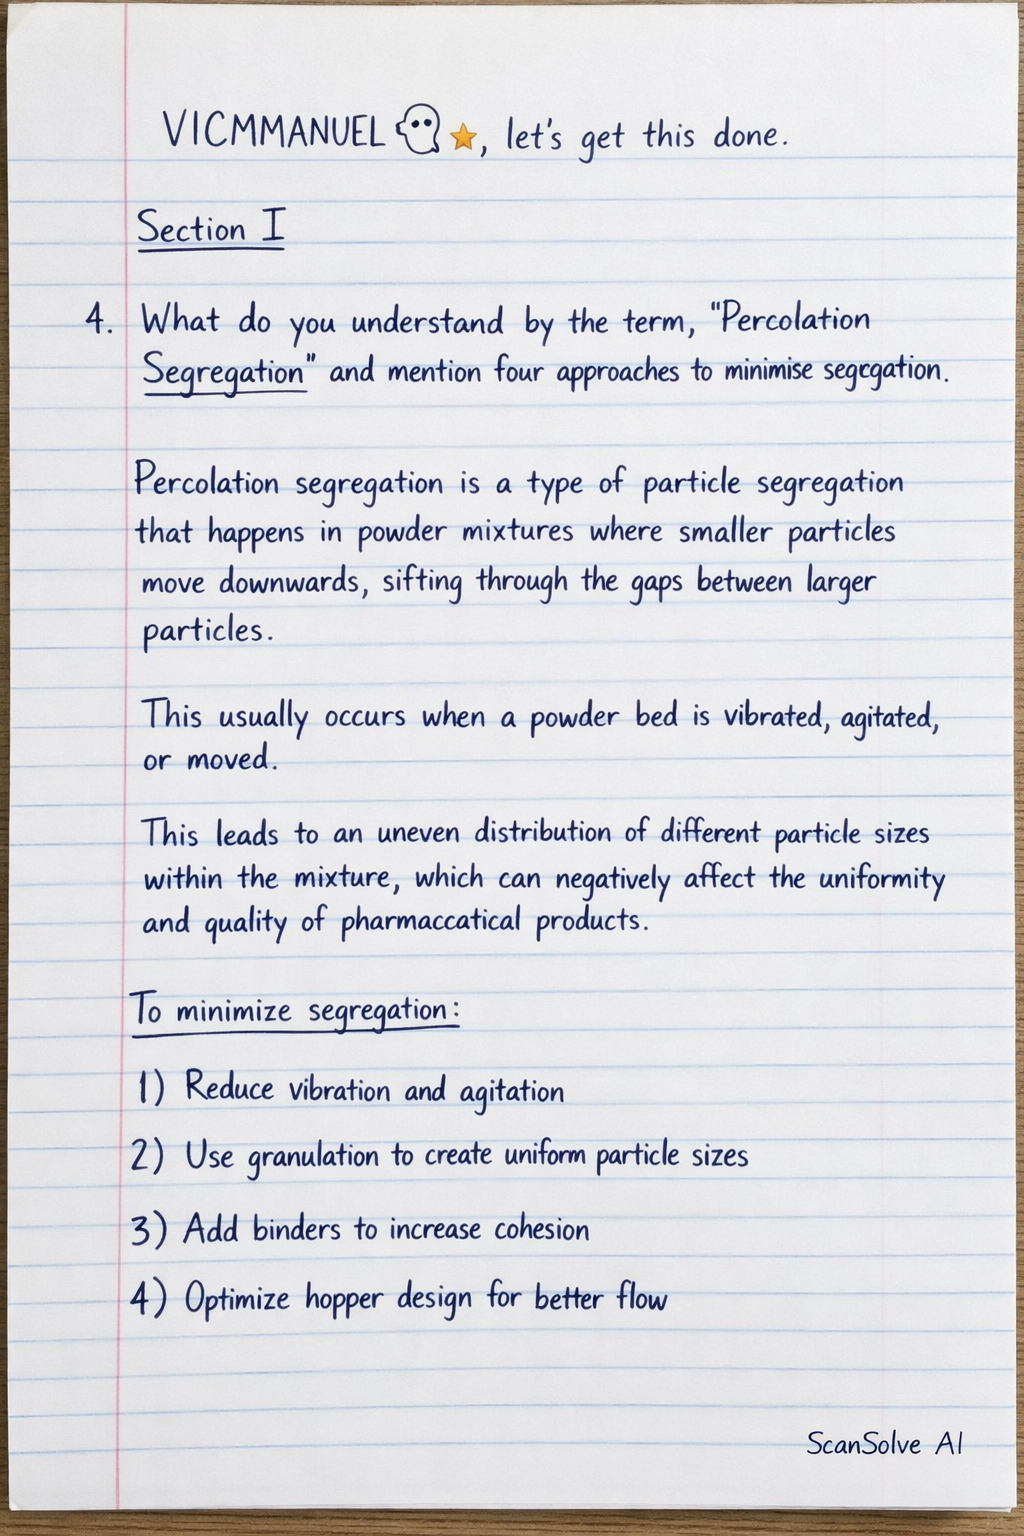 VICMMANUEL 👻⭐, let's get this done.
Section I
4. What do you understand by the term, "Percolation
Segregation" and mention four approaches to minimise segregation.
Percolation segregation is a type of particle segregation
that happens in powder mixtures where smaller particles
move downwards, sifting through the gaps between larger
particles.
This usually occurs when a powder bed is vibrated, agitated,
or moved.
This leads to an uneven distribution of different particle sizes
within the mixture, which can negatively affect the uniformity
and quality of pharmaccatical products.
To minimize segregation:
1) Reduce vibration and agitation
2) Use granulation to create uniform particle sizes
3) Add binders to increase cohesion
4) Optimize hopper design for better flow
ScanSolve AI